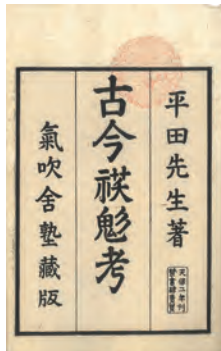 平田先生著
古今䄏鬽考
氣吹舍塾藏版